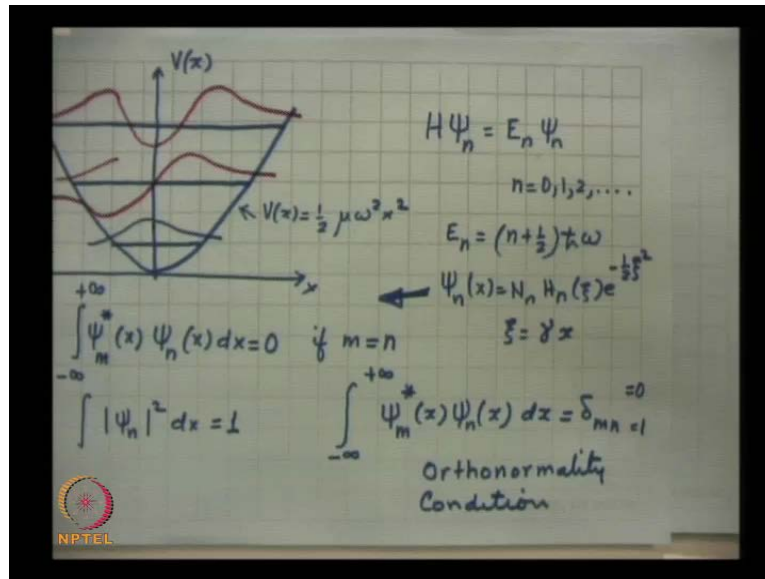 V(x)
Hψ_n = E_n ψ_n
n=0,1,2,....
V(x)=½ μω²x²
E_n = (n+½)ħω
x
ψ_n(x)=N_n H_n(ξ)e^{-½ξ²}
ξ=γx
∫_{-∞}^{+∞} ψ_m^*(x) ψ_n(x) dx=0 if m=n
∫ |ψ_n|² dx =1
∫_{-∞}^{+∞} ψ_m^*(x)ψ_n(x) dx = δ_{mn} =0 =1
Orthonormality
Condition
NPTEL